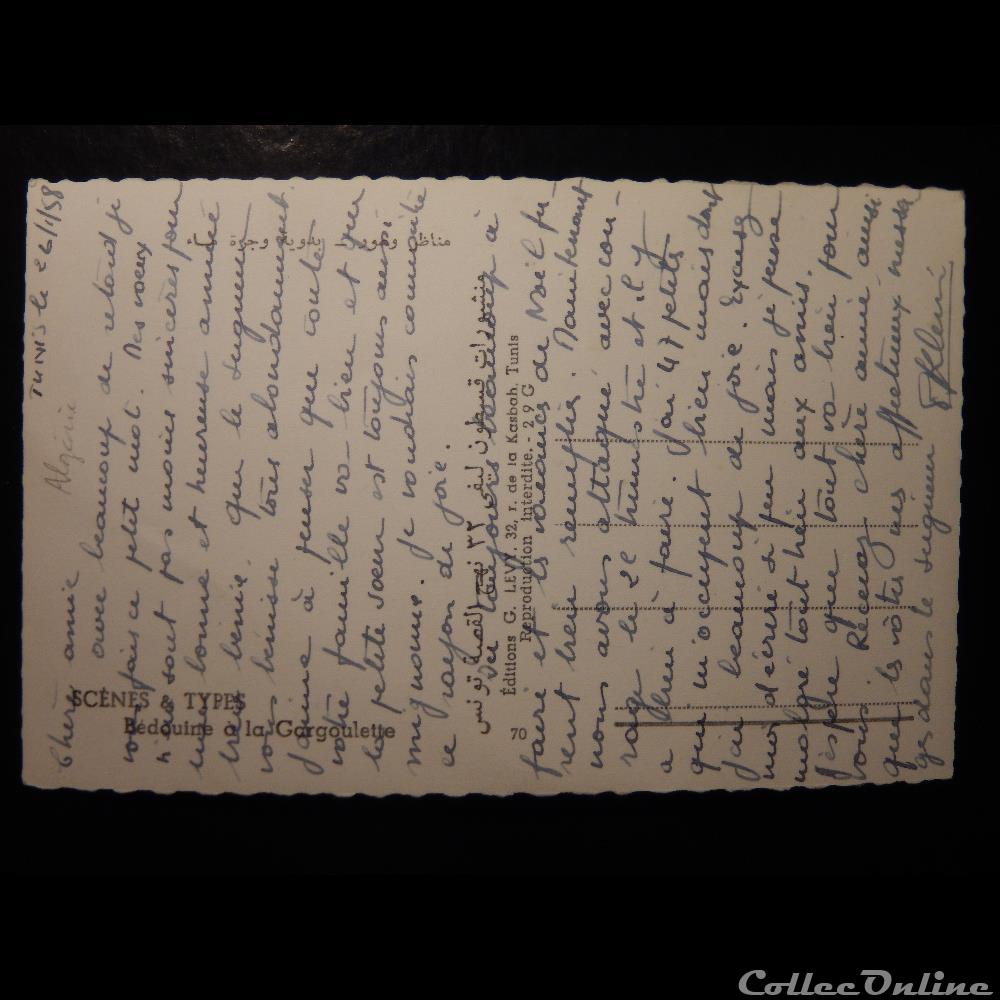 Tunis le 26/1/58
Algérie
Chère amie
avec beaucoup de retard je
vous fais ce petit mot. Mes voeux
n'en sont pas moins sincères pour
une bonne et heureuse année
très bénie. que le Seigneur
vous bénisse très abondamment.
J'aime à penser que toute
votre famille va bien et que
la petite soeur est toujours aussi
mignonne. je voudrais connaître
ce rayon de joie.
toujours beaucoup à
faire et les vacances de Noël fu-
rent bien remplies. Maintenant
nous avons attaqué avec cou-
rage le 2e trimestre et il y
a bien à faire. J'ai 47 petits
qui m'occupent bien mais dont
j'ai beaucoup de joie. Excusez
moi d'écrire si peu mais je pense
malgré tout bien aux amis.
J'espère que tout va bien pour
vous. Recevez chère amie ainsi
que les vôtres mes affectueux messa-
ges dans le Seigneur
SCÈNES & TYPES
Bédouine à la Gargoulette
مناظر وهوور ط بدوية وجرة ماء
منشورات قسطون ليفي ٣٢ نهج القصبة تونس
Éditions G. LÉVY, 32, r. de la Kasbah, Tunis
Reproduction interdite. - 2 9 G
70
CollecOnline